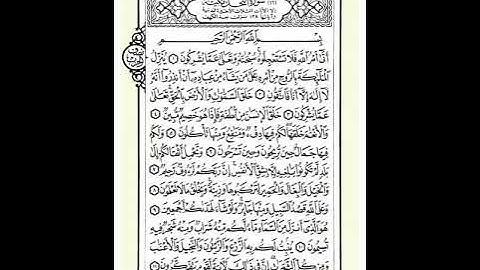 (١٦) سُورَةُ النَّحْلِ مَكِّيَّة
بِسْمِ ٱللَّهِ ٱلرَّحْمَٰنِ ٱلرَّحِيمِ
أَتَىٰٓ أَمْرُ ٱللَّهِ فَلَا تَسْتَعْجِلُوهُ سُبْحَٰنَهُۥ وَتَعَٰلَىٰ عَمَّا يُشْرِكُونَ ١ يُنَزِّلُ
ٱلْمَلَٰٓئِكَةَ بِٱلرُّوحِ مِنْ أَمْرِهِۦ عَلَىٰ مَن يَشَآءُ مِنْ عِبَادِهِۦٓ أَنْ أَنذِرُوٓا۟ أَنَّهُۥ
لَآ إِلَٰهَ إِلَّآ أَنَا۠ فَٱتَّقُونِ ٢ خَلَقَ ٱلسَّمَٰوَٰتِ وَٱلْأَرْضَ بِٱلْحَقِّ تَعَٰلَىٰ
عَمَّا يُشْرِكُونَ ٣ خَلَقَ ٱلْإِنسَٰنَ مِن نُّطْفَةٍ فَإِذَا هُوَ خَصِيمٌ مُّبِينٌ ٤
وَٱلْأَنْعَٰمَ خَلَقَهَا لَكُمْ فِيهَا دِفْءٌ وَمَنَٰفِعُ وَمِنْهَا تَأْكُلُونَ ٥ وَلَكُمْ
فِيهَا جَمَالٌ حِينَ تُرِيحُونَ وَحِينَ تَسْرَحُونَ ٦ وَتَحْمِلُ أَثْقَالَكُمْ إِلَىٰ
بَلَدٍ لَّمْ تَكُونُوا۟ بَٰلِغِيهِ إِلَّا بِشِقِّ ٱلْأَنفُسِ إِنَّ رَبَّكُمْ لَرَءُوفٌ رَّحِيمٌ ٧
وَٱلْخَيْلَ وَٱلْبِغَالَ وَٱلْحَمِيرَ لِتَرْكَبُوهَا وَزِينَةً وَيَخْلُقُ مَا لَا تَعْلَمُونَ ٨
وَعَلَى ٱللَّهِ قَصْدُ ٱلسَّبِيلِ وَمِنْهَا جَآئِرٌ وَلَوْ شَآءَ لَهَدَىٰكُمْ أَجْمَعِينَ ٩
هُوَ ٱلَّذِىٓ أَنزَلَ مِنَ ٱلسَّمَآءِ مَآءً لَّكُم مِّنْهُ شَرَابٌ وَمِنْهُ شَجَرٌ فِيهِ
تُسِيمُونَ ١٠ يُنۢبِتُ لَكُم بِهِ ٱلزَّرْعَ وَٱلزَّيْتُونَ وَٱلنَّخِيلَ وَٱلْأَعْنَٰبَ
وَمِن كُلِّ ٱلثَّمَرَٰتِ إِنَّ فِى ذَٰلِكَ لَءَايَةً لِّقَوْمٍ يَتَفَكَّرُونَ